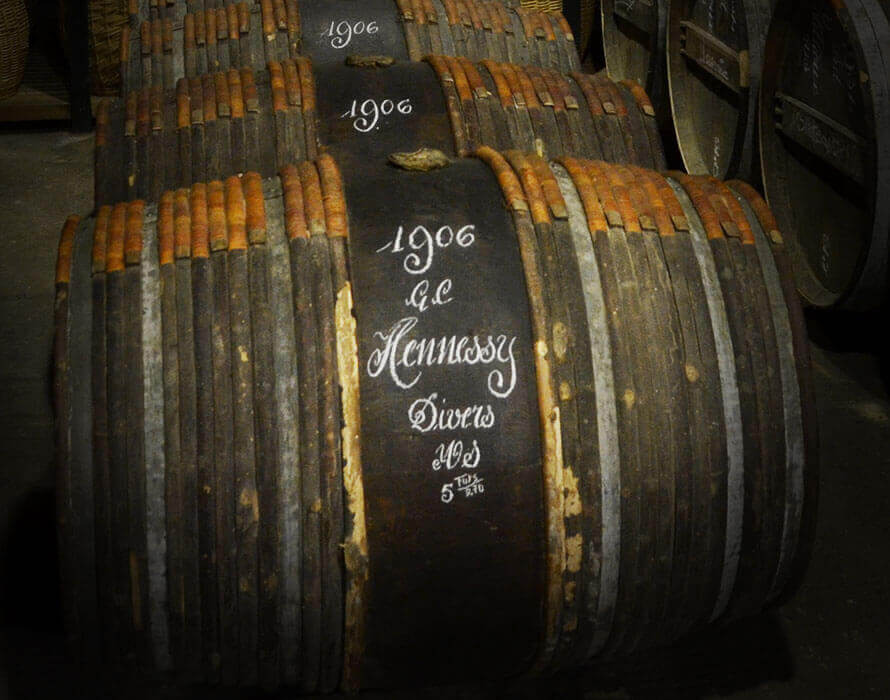 1906
1906
1906
G.C
Hennessy
Divers
5 Futs